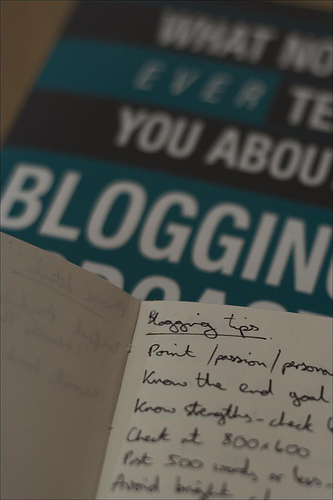 WHAT NO
EVER TE
YOU ABOU
BLOGGING
Blogging tips
Point / passion / persona
Know the end goal
Know strengths - check
Check at 800x600
Post 500 words or less
Avoid bright